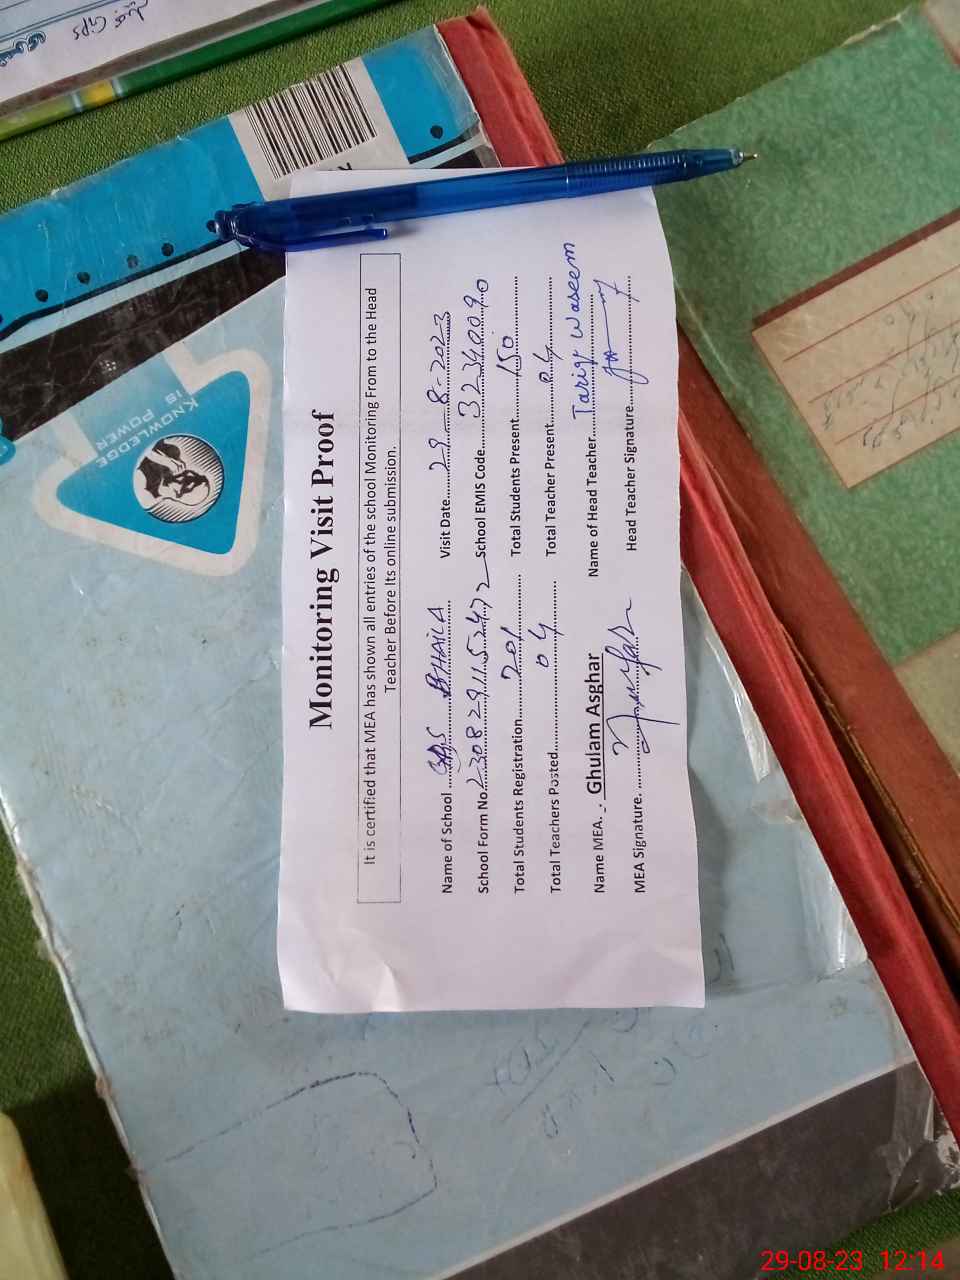 Monitoring Visit Proof
It is certified that MEA has shown all entries of the school Monitoring From to the Head
Teacher Before Its online submission.
Name of School ........ BHAILA Visit Date 29-8-2023
School Form No. 230829115472 School EMIS Code 32340090
Total Students Registration 201 Total Students Present 150
Total Teachers Posted 04 Total Teacher Present 04
Name MEA. Ghulam Asghar Name of Head Teacher Tariq Waseem
MEA Signature. Head Teacher Signature
KNOWLEDGE
IS POWER
GPS
29-08-23 12:14